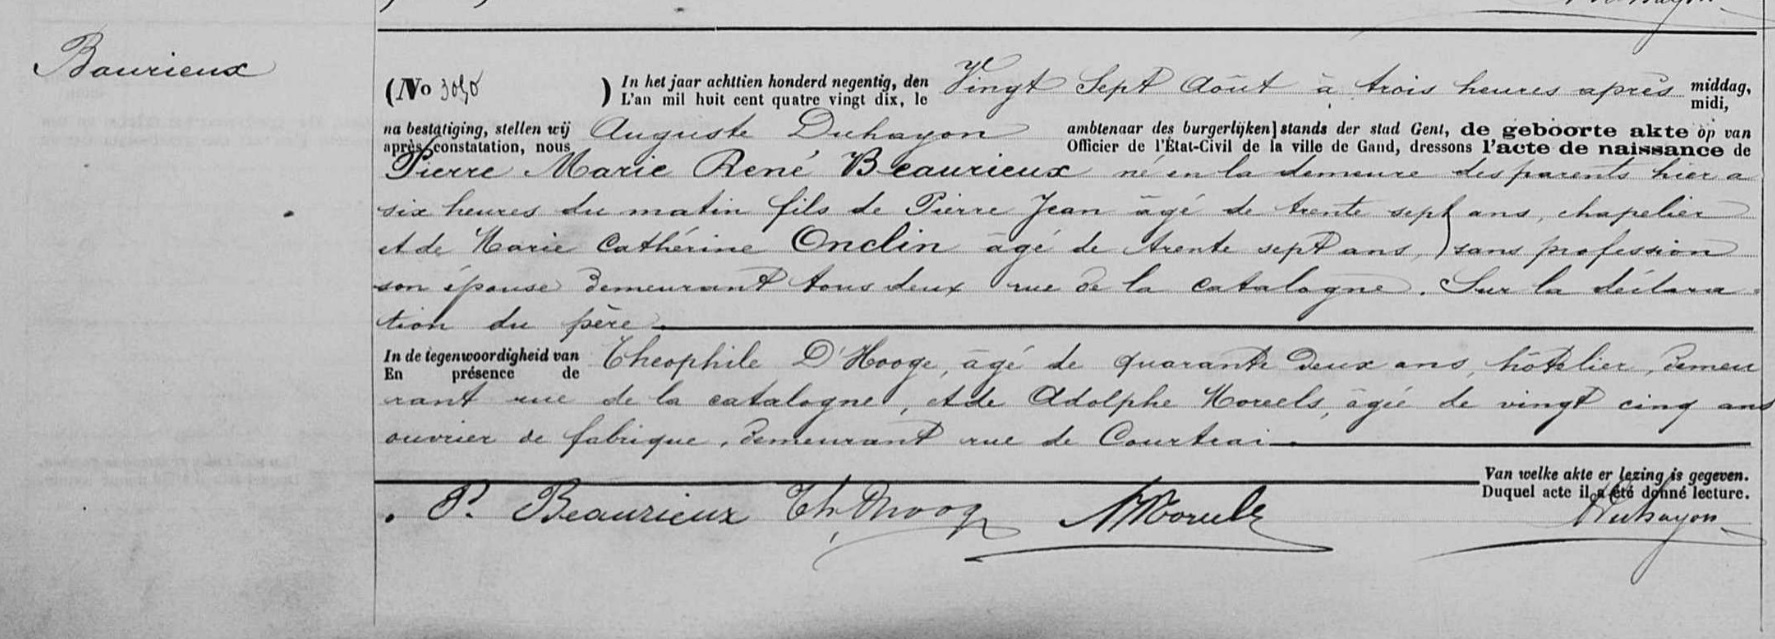 Baurieux
(No 3050 ) In het jaar achttien honderd negentig, den Vingt Sept Août à trois heures après middag,
L'an mil huit cent quatre vingt dix, le midi,
na bestatiging, stellen wij Auguste Duhayon ambtenaar des burgerlijken stands der stad Gent, de geboorte akte op van
après constatation, nous Officier de l'État-Civil de la ville de Gand, dressons l'acte de naissance de
Pierre Marie René Beaurieux né en la demeure des parents hier a
six heures du matin fils de Pierre Jean âgé de trente sept ans, chapelier
et de Marie Cathérine Onclin âgé de trente sept ans, sans profession
son épouse demeurant tous deux rue de la catalogne. Sur la déclara
tion du père.
In de tegenwoordigheid van Theophile D'Hooge, âgé de quarante deux ans, hôtelier, demeu
En présence de
rant rue de la catalogne, et de Adolphe Moreels, âgée de vingt cinq ans
ouvrier de fabrique, demeurant rue de Courtrai.
Van welke akte er lezing is gegeven.
Duquel acte il a été donné lecture.
P. Beaurieux Th. Dhooge A Moreels ADuhayon